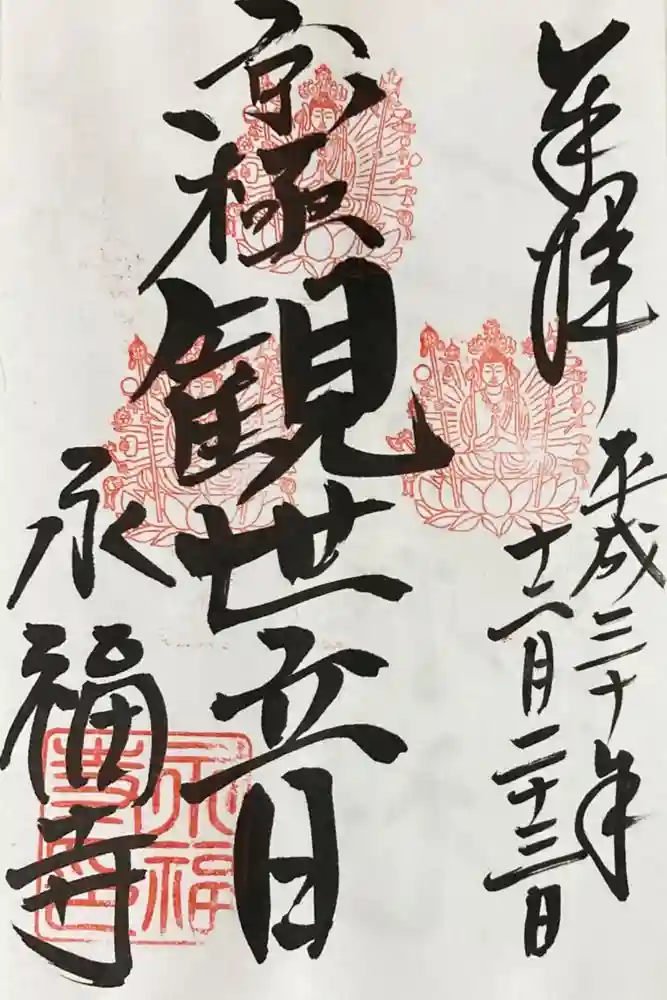 奉拝
平成三十年
十二月二十三日
京極
観世音
永福寺
永福
寺印